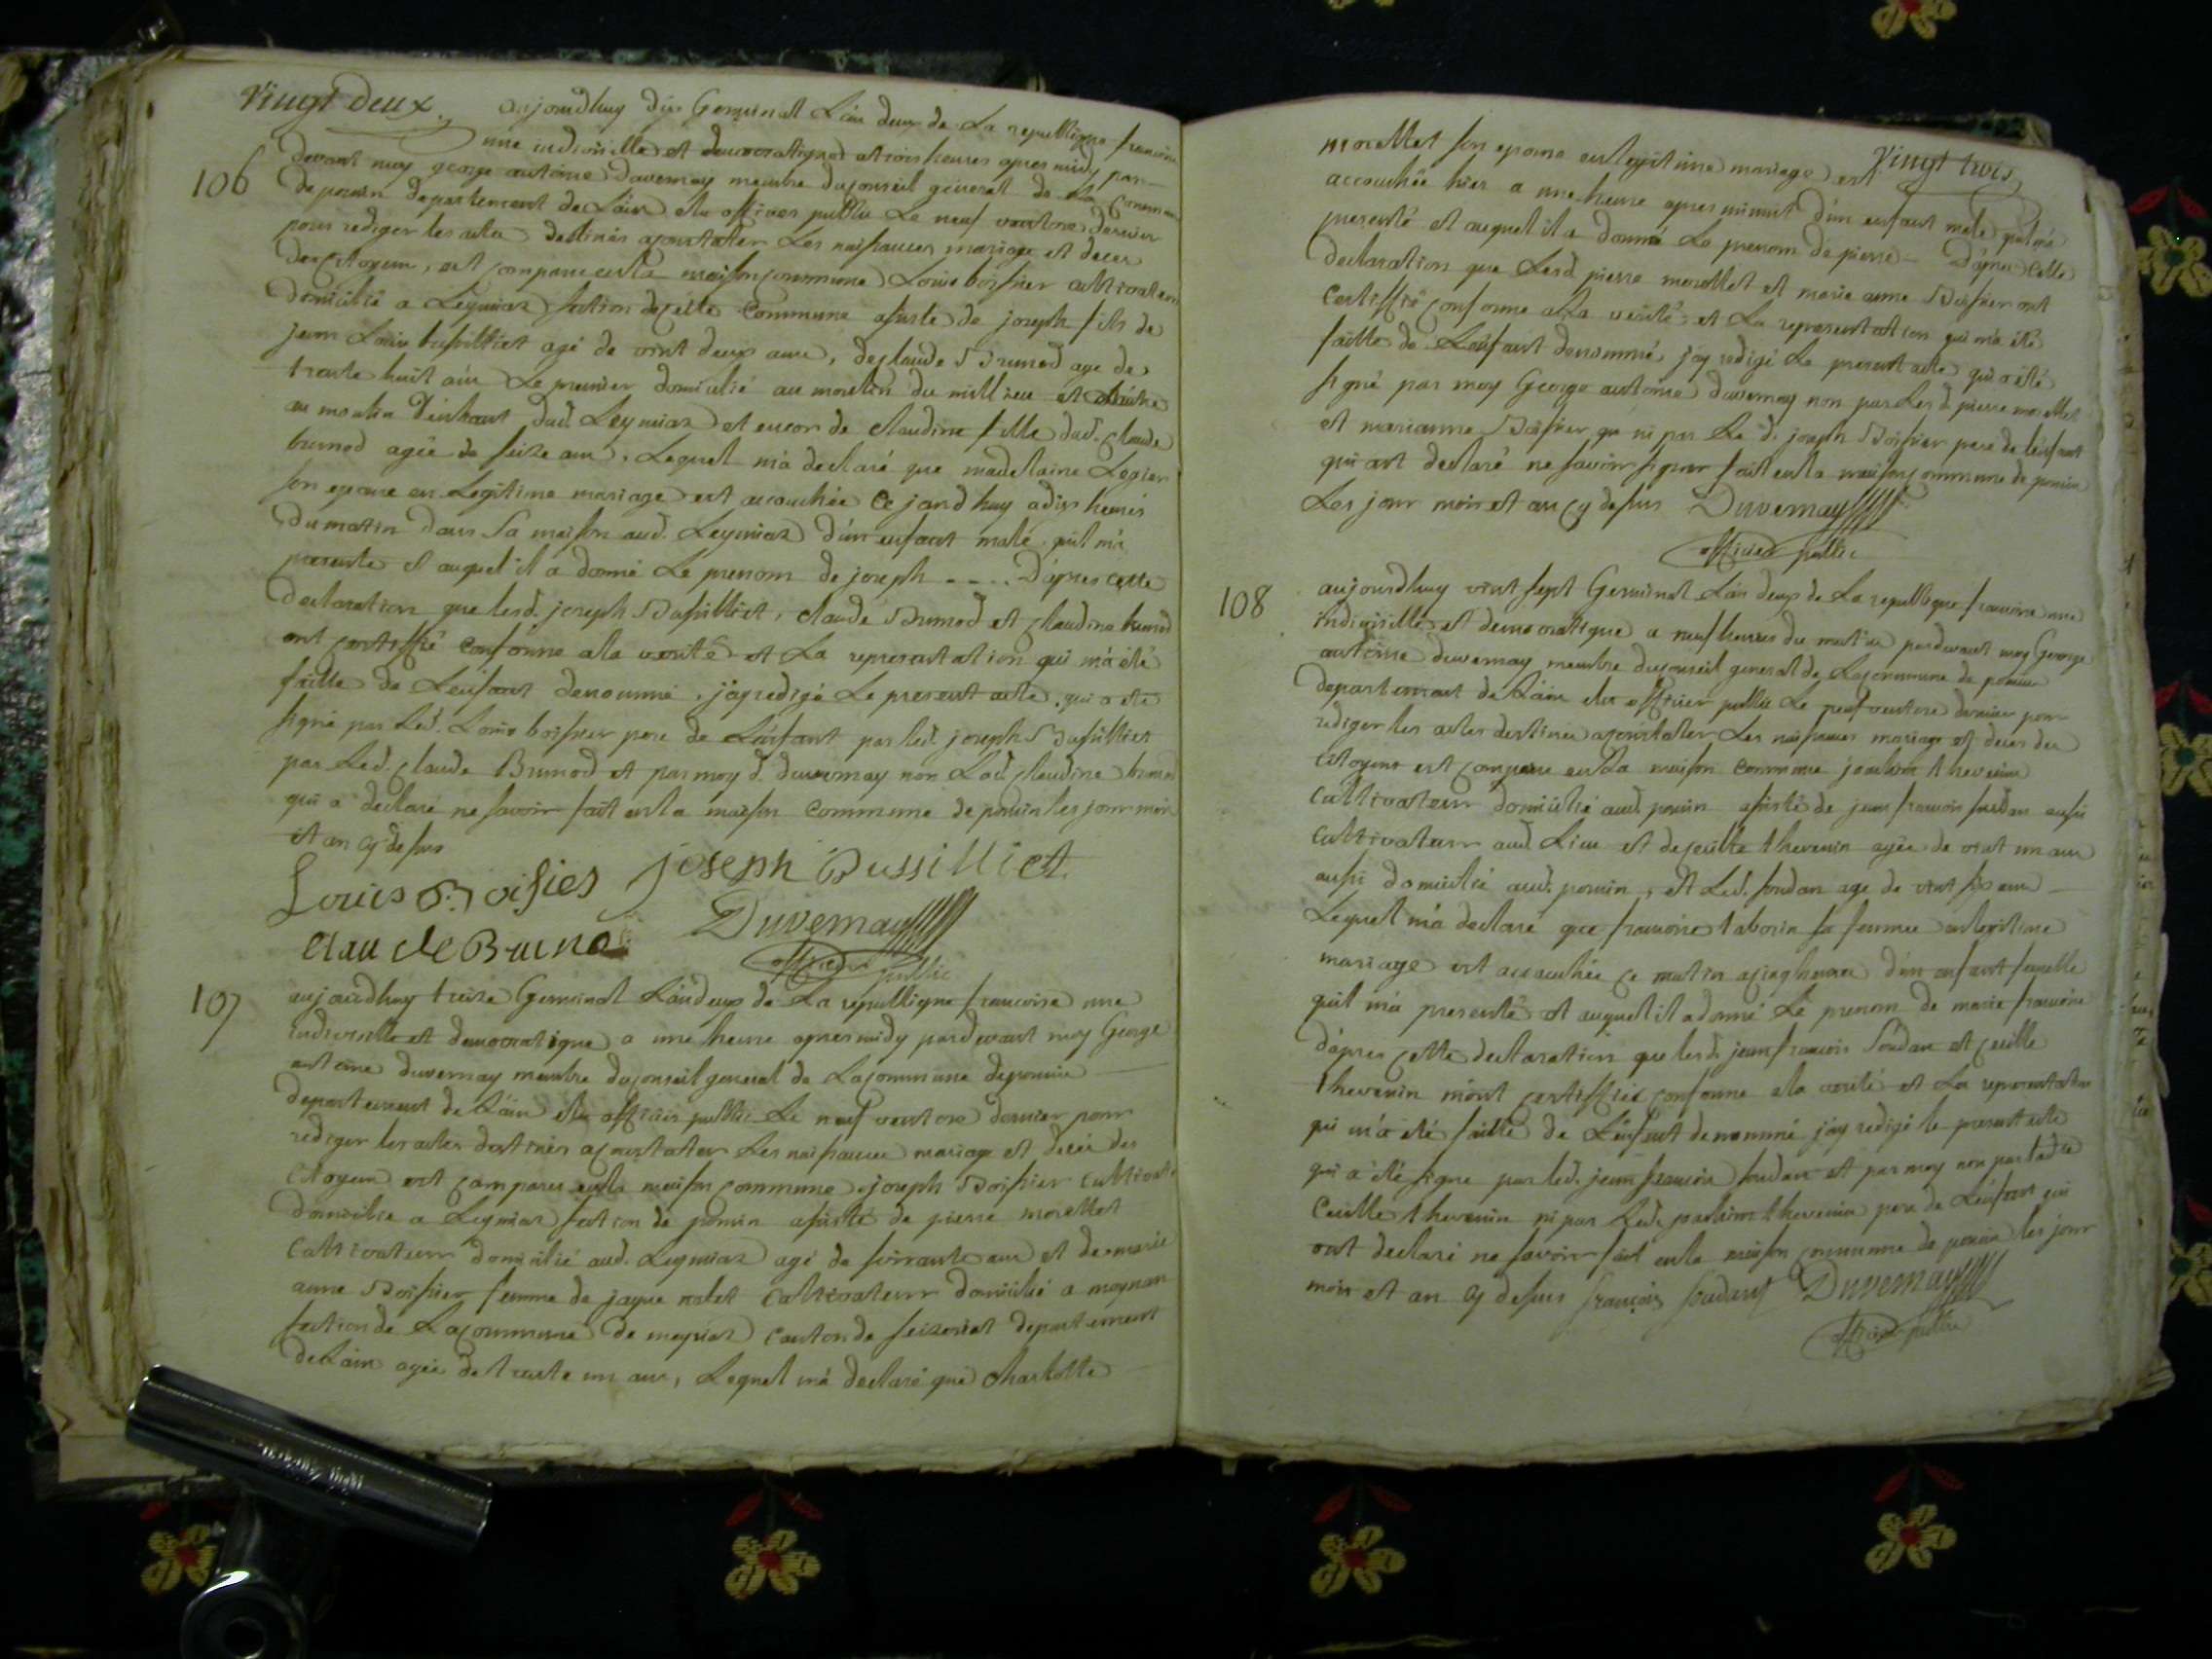 Vingt deux
aujourdhuy dix Germinal L'an deux de La republique francoise
une indivisille et democratique a trois heures apres midy par
106
devant moy george antoine Duvernay membre du conseil géneral de la Commune
de poncin departement de L'ain elu officier public Le neuf ventose dernier
pour rediger les actes destinés a constater Les naissances mariage et deces
des Citoyens, est comparu en la maison commune Louis boissier cultivateur
domicilié a Leymiaz section de cette Commune assisté de joseph fils de
jean Louis bussilliet agé de vint deux ans, de claude Brunod age de
trente huit ans Le premier domicilié au moulin du millieu et Lautre
au moulin d'enhaut dud. Leymiaz et encor de claudine fille dud. claude
brunod agée de seize ans. Lequel m'a declaré que madelaine Legier
son epouse en Legitime mariage est accouchée ce jourdhuy a dix heures
du matin dans sa maison aud. Leymiaz d'un enfant male qu'il m'a
presenté et auquel il a donné Le prenom de joseph .... D'apres cette
declaration que lesd. joseph Bussilliet, claude Brunod et claudine brunod
ont certiffié conforme a la verité et La representation qui m'a été
faitte de L'enfant denommé, j'ay redigé Le present acte, qui a été
signé par Led. Louis boissier pere de L'enfant par led. joseph Bussilliet
par Led. claude Brunod et par moy d. duvernay non Lad. claudine brunod
qui a declaré ne savoir fait en la maison commune de poncin les jour mois
et an cy dessus
Louis Boisier joseph Bussilliet
Claude Bruno Duvernay
officier public
107
aujourdhuy treize Germinal L'an deux de La republique francoise une
indivisille et democratique a une heure apres midy pardevant moy George
antoine duvernay membre du conseil general de La commune de poncin
departement de L'ain elu officier public Le neuf ventose dernier pour
rediger les actes destinés a constater Les naissances mariage et decés des
Citoyens est comparu en la maison commune joseph Boissier cultivateur
domicilie a Leymiaz section de poncin assisté de pierre morellet
cultivateur domicilié aud. Leymiaz agé de soixante ans et de marie
anne Boissier femme de jaque nalet cultivateur domicilié a
section de La commune de canton de departement
de L'ain agée de trente un ans, Lequel m'a declaré que charlotte
Vingt trois
morellet son epouse en legitime mariage est
accouchée hier a une heure apres minuit d'un enfant male qu'il m'a
presenté et auquel il a donné Le prenom de pierre - D'apres cette
declaration que Lesd. pierre morellet et marie anne Boissier ont
certiffié conforme a La verité et La representation qui m'a été
faitte de L'enfant denommé, j'ay redigé Le present acte qui a été
signé par moy George antoine duvernay non par Les d. pierre morellet
et marianne Boissier ni par Le d. joseph Boissier pere de l'enfant
qui ont declaré ne savoir signer fait en la maison commune de poncin
Les jour mois et an cy dessus Duvernay
officier public
108
aujourdhuy vint sept Germinal L'an deux de La republique francoise une
indivisille et democratique a neuf heures du matin pardevant moy George
antoine duvernay membre du conseil general de La commune de poncin
departement de L'ain elu officier public Le neuf ventose dernier pour
rediger les actes destinés a constater Les naissances mariage et deces des
Citoyens est comparu en La maison commune joachim thevenin
cultivateur domicilié aud. poncin assisté de jean francois soudan aussi
cultivateur aud. Lieu et de thevenin agée de vint un ans
aussi domicilié aud. poncin, et Led. soudan age de vint six ans
Lequel m'a declaré que francoise taborin sa femme en legitime
mariage est accouchée ce matin a cinq heures d'un enfant femelle
qu'il m'a presenté et auquel il a donné Le prenom de marie francoise
d'apres cette declaration que lesd. jean francois Soudan et
thevenin m'ont certiffiée conforme a la verité et La representation
qui m'a été faitte de L'enfant denommé j'ay redigé le present acte
qui a été signe par led. jean francois soudan et par moy non par ladte
thevenin ni par Led. joachim thevenin pere de L'enfant qui
ont declaré ne savoir fait en la maison commune de poncin les jour
mois et an cy dessus françois soudant Duvernay
officier public